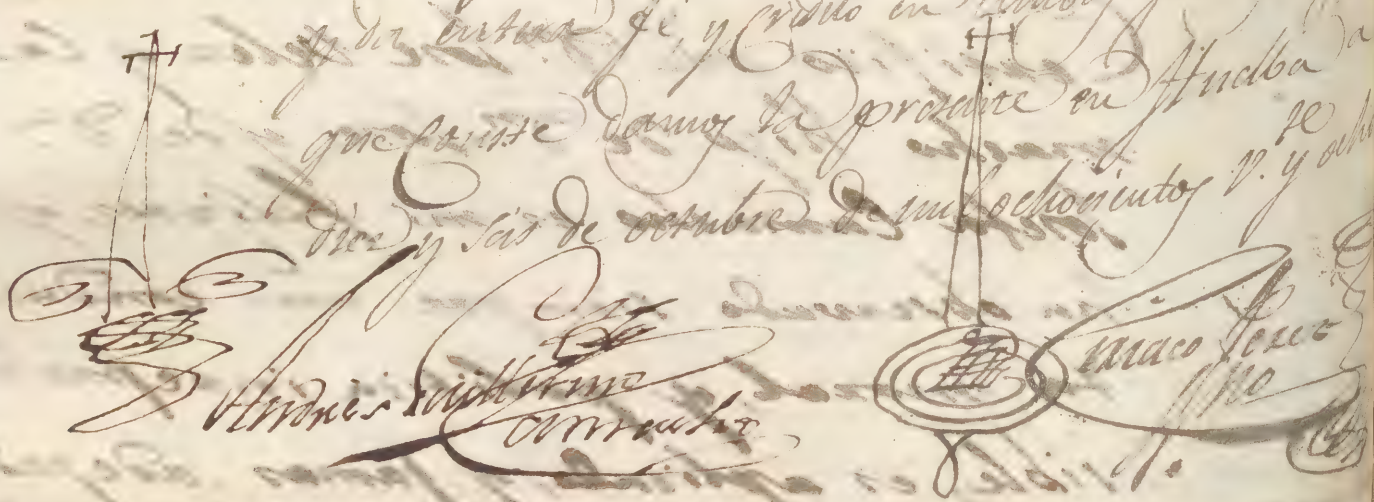 y da entera fe, y Credito en
que Conste damos la presente en Huelba a
diez y seis de octubre de mil ochocientos v.te y ocho
Andres Guillermo
Camacho
Perez